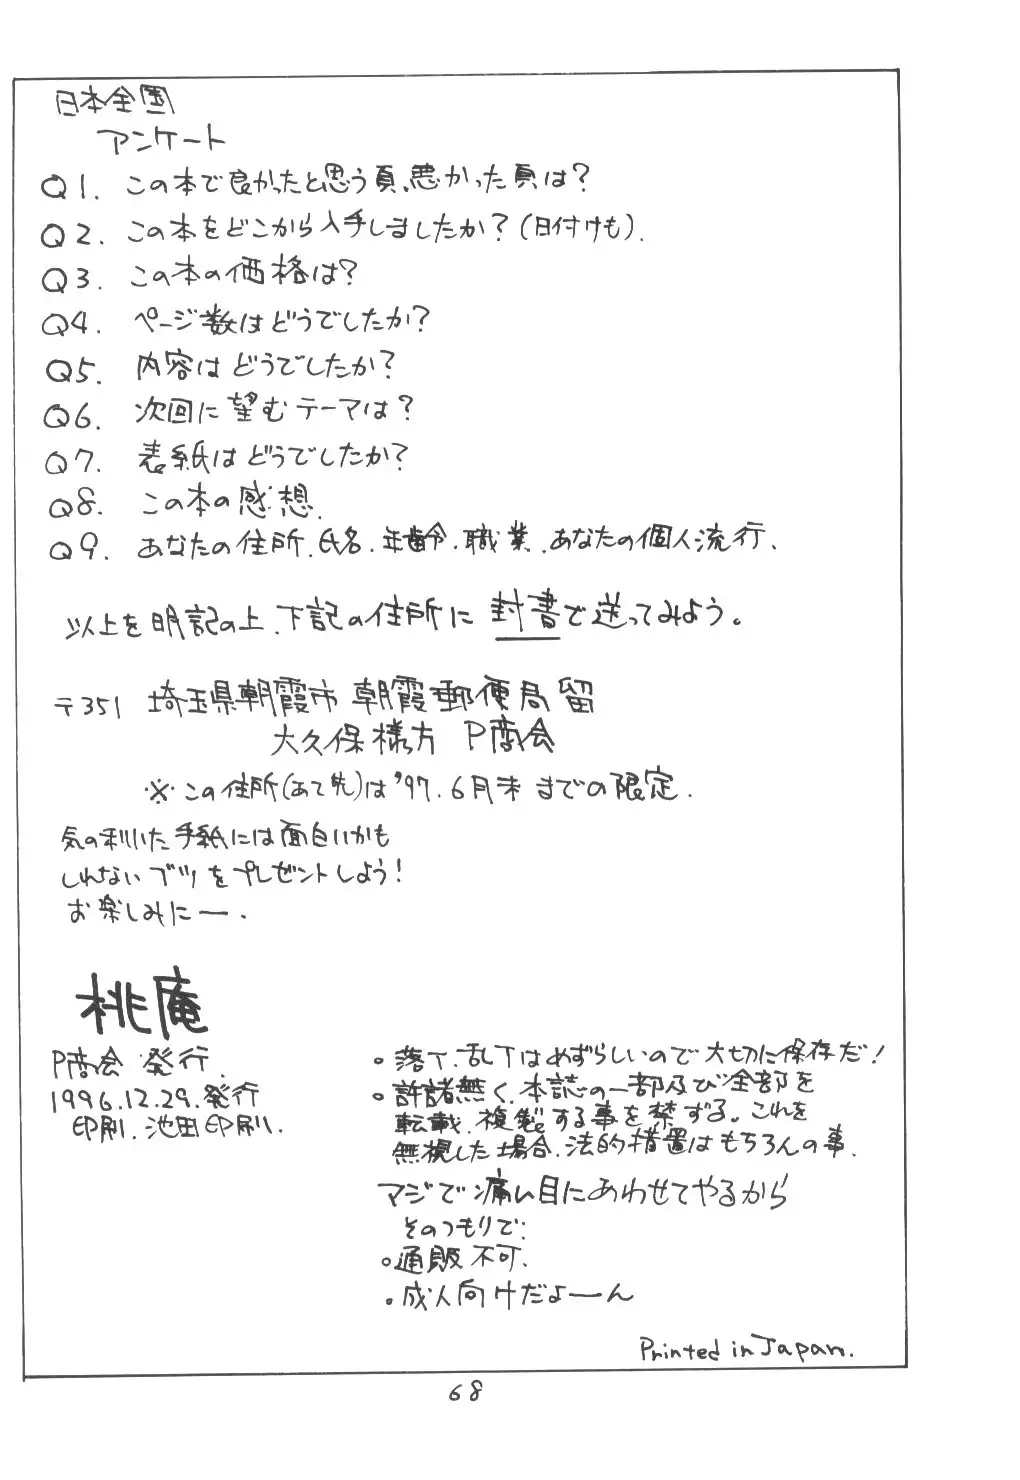 日本全国
アンケート
Q1. この本で良かったと思う頁、悪かった頁は?
Q2. この本をどこから入手しましたか?(日付けも).
Q3. この本の価格は?
Q4. ページ数はどうでしたか?
Q5. 内容はどうでしたか?
Q6. 次回に望むテーマは?
Q7. 表紙はどうでしたか?
Q8. この本の感想.
Q9. あなたの住所.氏名.年齢.職業.あなたの個人流行.
以上を明記の上、下記の住所に封書で送ってみよう。
〒351 埼玉県朝霞市朝霞郵便局留
大久保様方 P商会
※この住所(あて先)は'97.6月末までの限定.
気の利いた手紙には面白いかも
しれないブツをプレゼントしよう!
お楽しみにー.
桃庵
P商会 発行.
1996.12.29.発行
印刷.池田印刷.
。落丁.乱丁はめずらしいので大切に保存だ!
。許諾無く、本誌の一部及び全部を
転載.複製する事を禁ずる。これを
無視した場合.法的措置はもちろんの事.
マジで痛い目にあわせてやるから
そのつもりで.
。通販不可.
。成人向けだよーん
Printed in Japan.
68